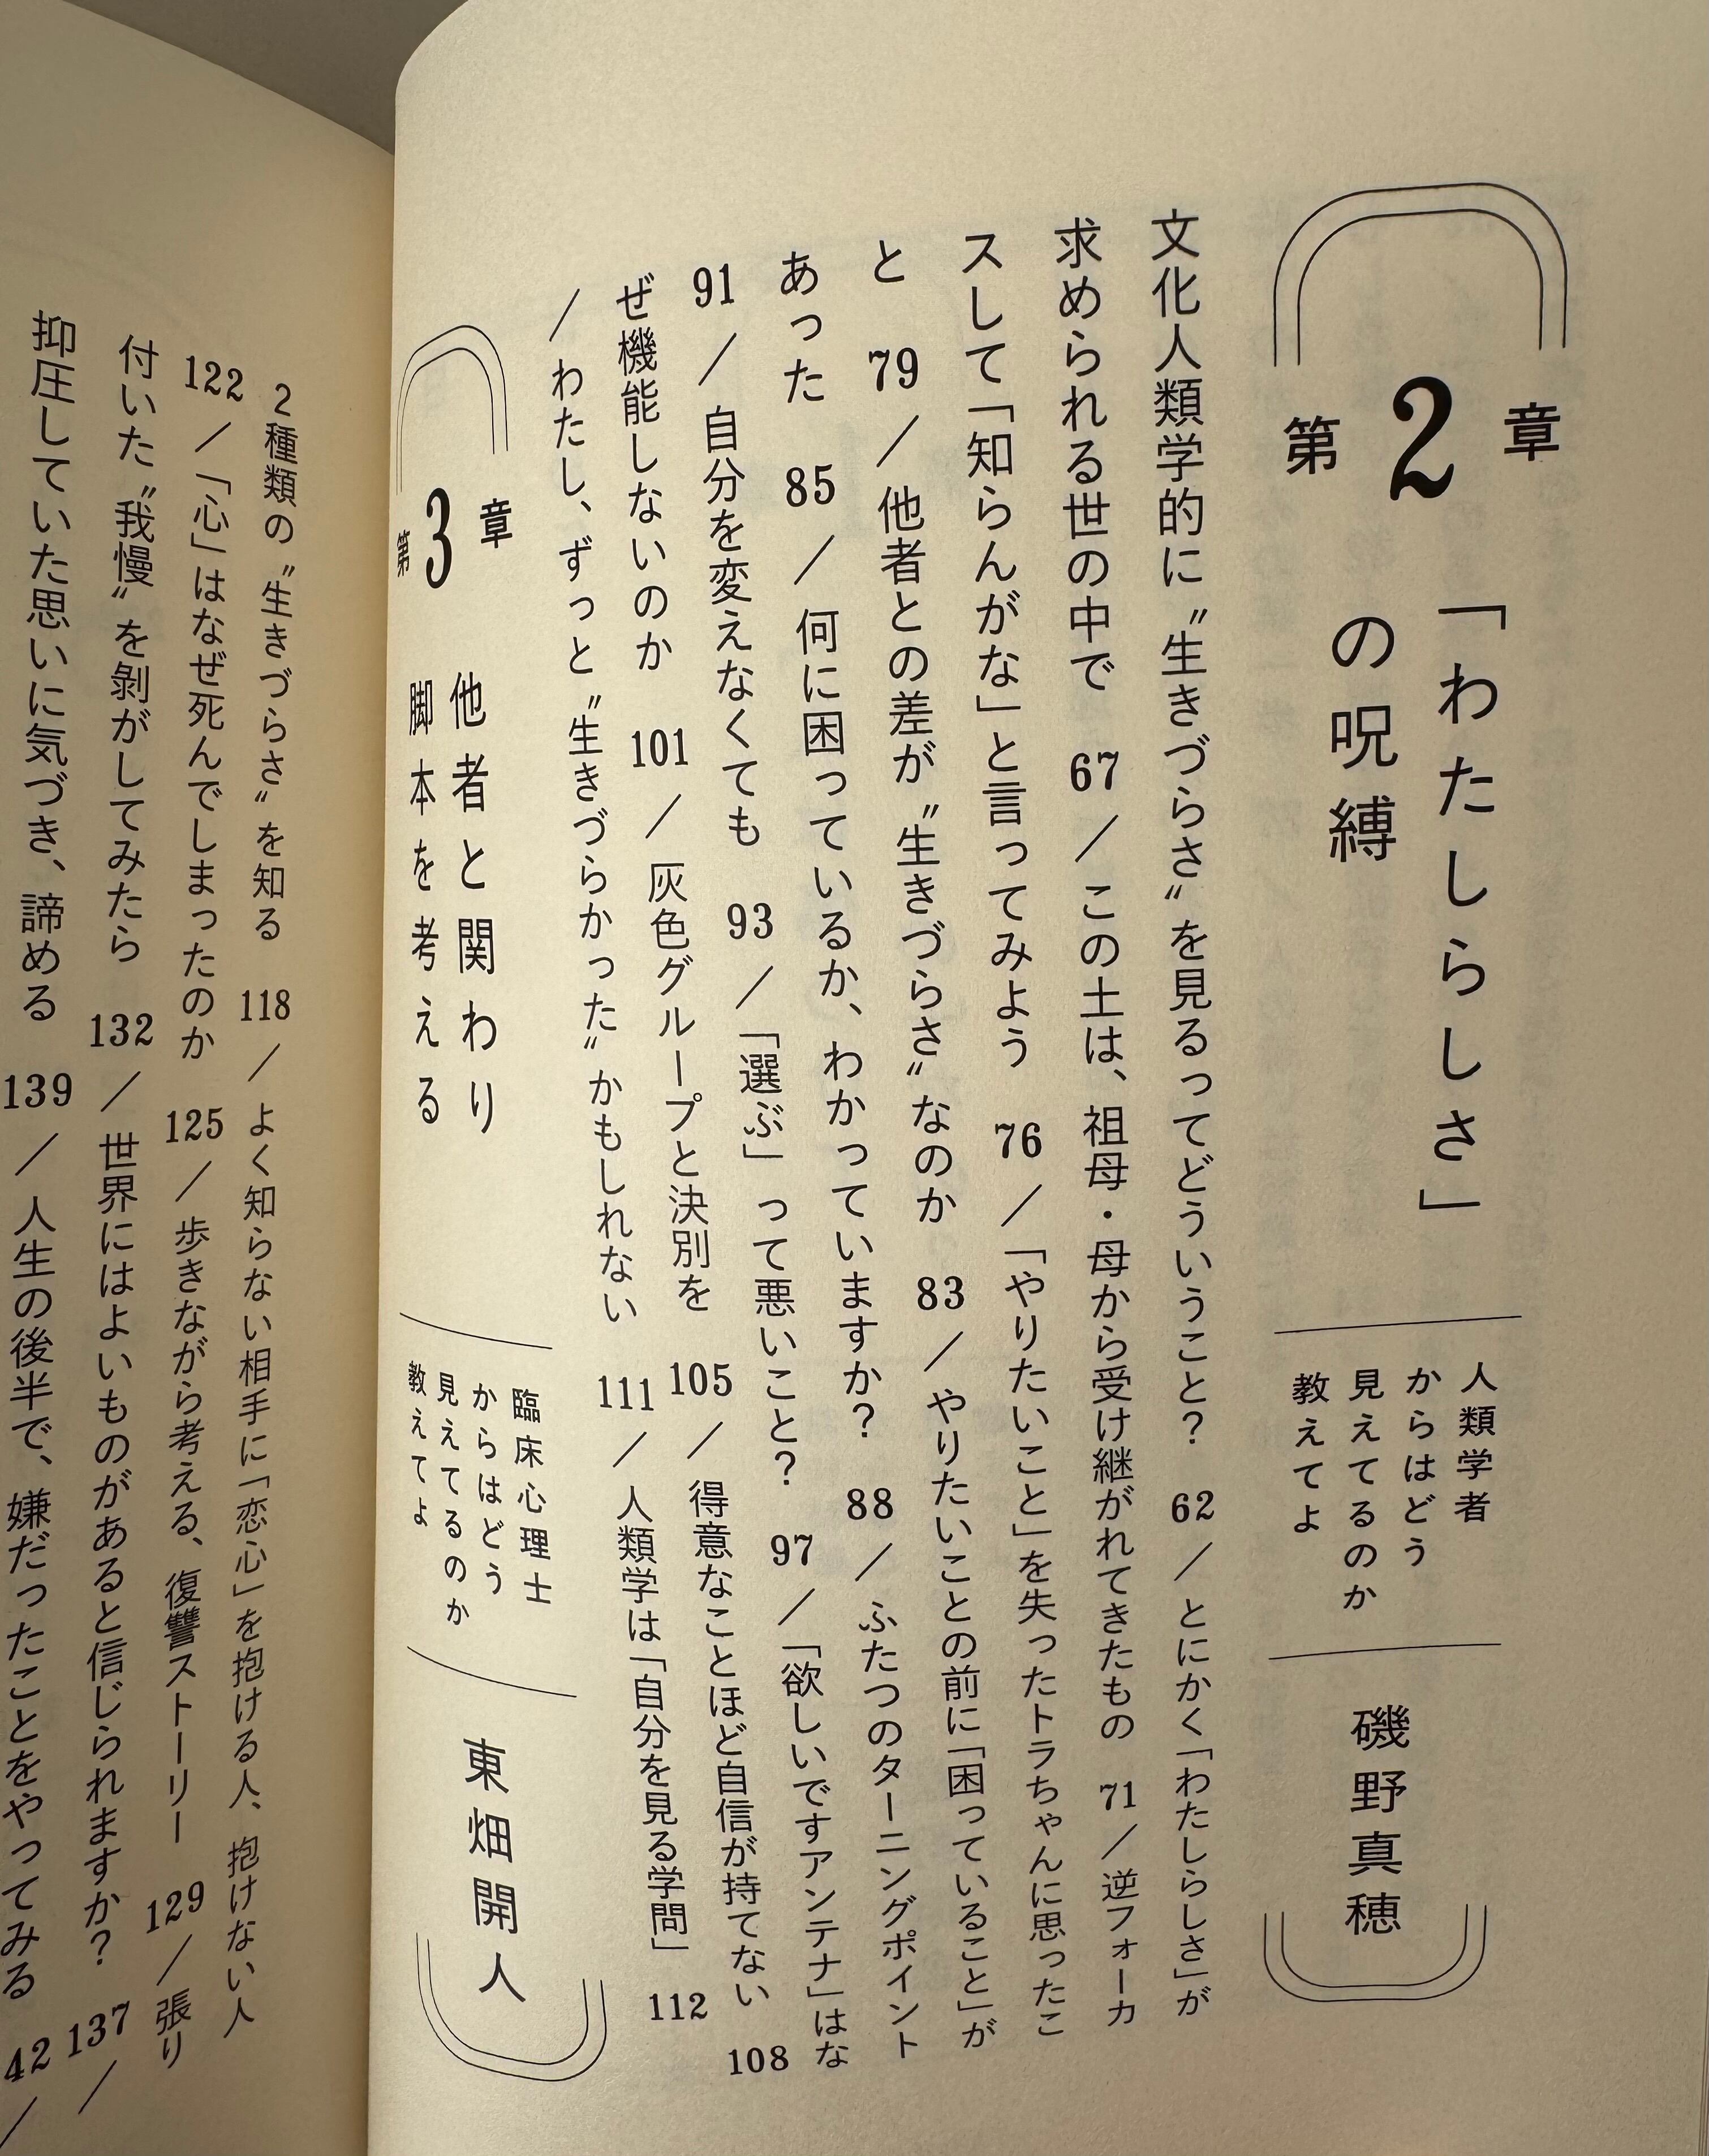 第2章
「わたしらしさ」
の呪縛
人類学者
からはどう
見えてるのか
教えてよ
磯野真穂
文化人類学的に〝生きづらさ〟を見るってどういうこと? 62/とにかく「わたしらしさ」が
求められる世の中で 67/この土は、祖母・母から受け継がれてきたもの 71/逆フォーカ
スして「知らんがな」と言ってみよう 76/「やりたいこと」を失ったトラちゃんに思ったこ
と 79/他者との差が〝生きづらさ〟なのか 83/やりたいことの前に「困っていること」が
あった 85/何に困っているか、わかっていますか? 88/ふたつのターニングポイント
91/自分を変えなくても 93/「選ぶ」って悪いこと? 97/「欲しいですアンテナ」はな
ぜ機能しないのか 101/灰色グループと決別を 105/得意なことほど自信が持てない 108
/わたし、ずっと〝生きづらかった〟かもしれない 111/人類学は「自分を見る学問」 112
第3章
他者と関わり
脚本を考える
臨床心理士
からはどう
見えてるのか
教えてよ
東畑開人
2種類の〝生きづらさ〟を知る 118/よく知らない相手に「恋心」を抱ける人、抱けない人
122/「心」はなぜ死んでしまったのか 125/歩きながら考える、復讐ストーリー 129/張り
付いた〝我慢〟を剝がしてみたら 132/世界にはよいものがあると信じられますか? 137/
抑圧していた思いに気づき、諦める 139/人生の後半で、嫌だったことをやってみる 42/